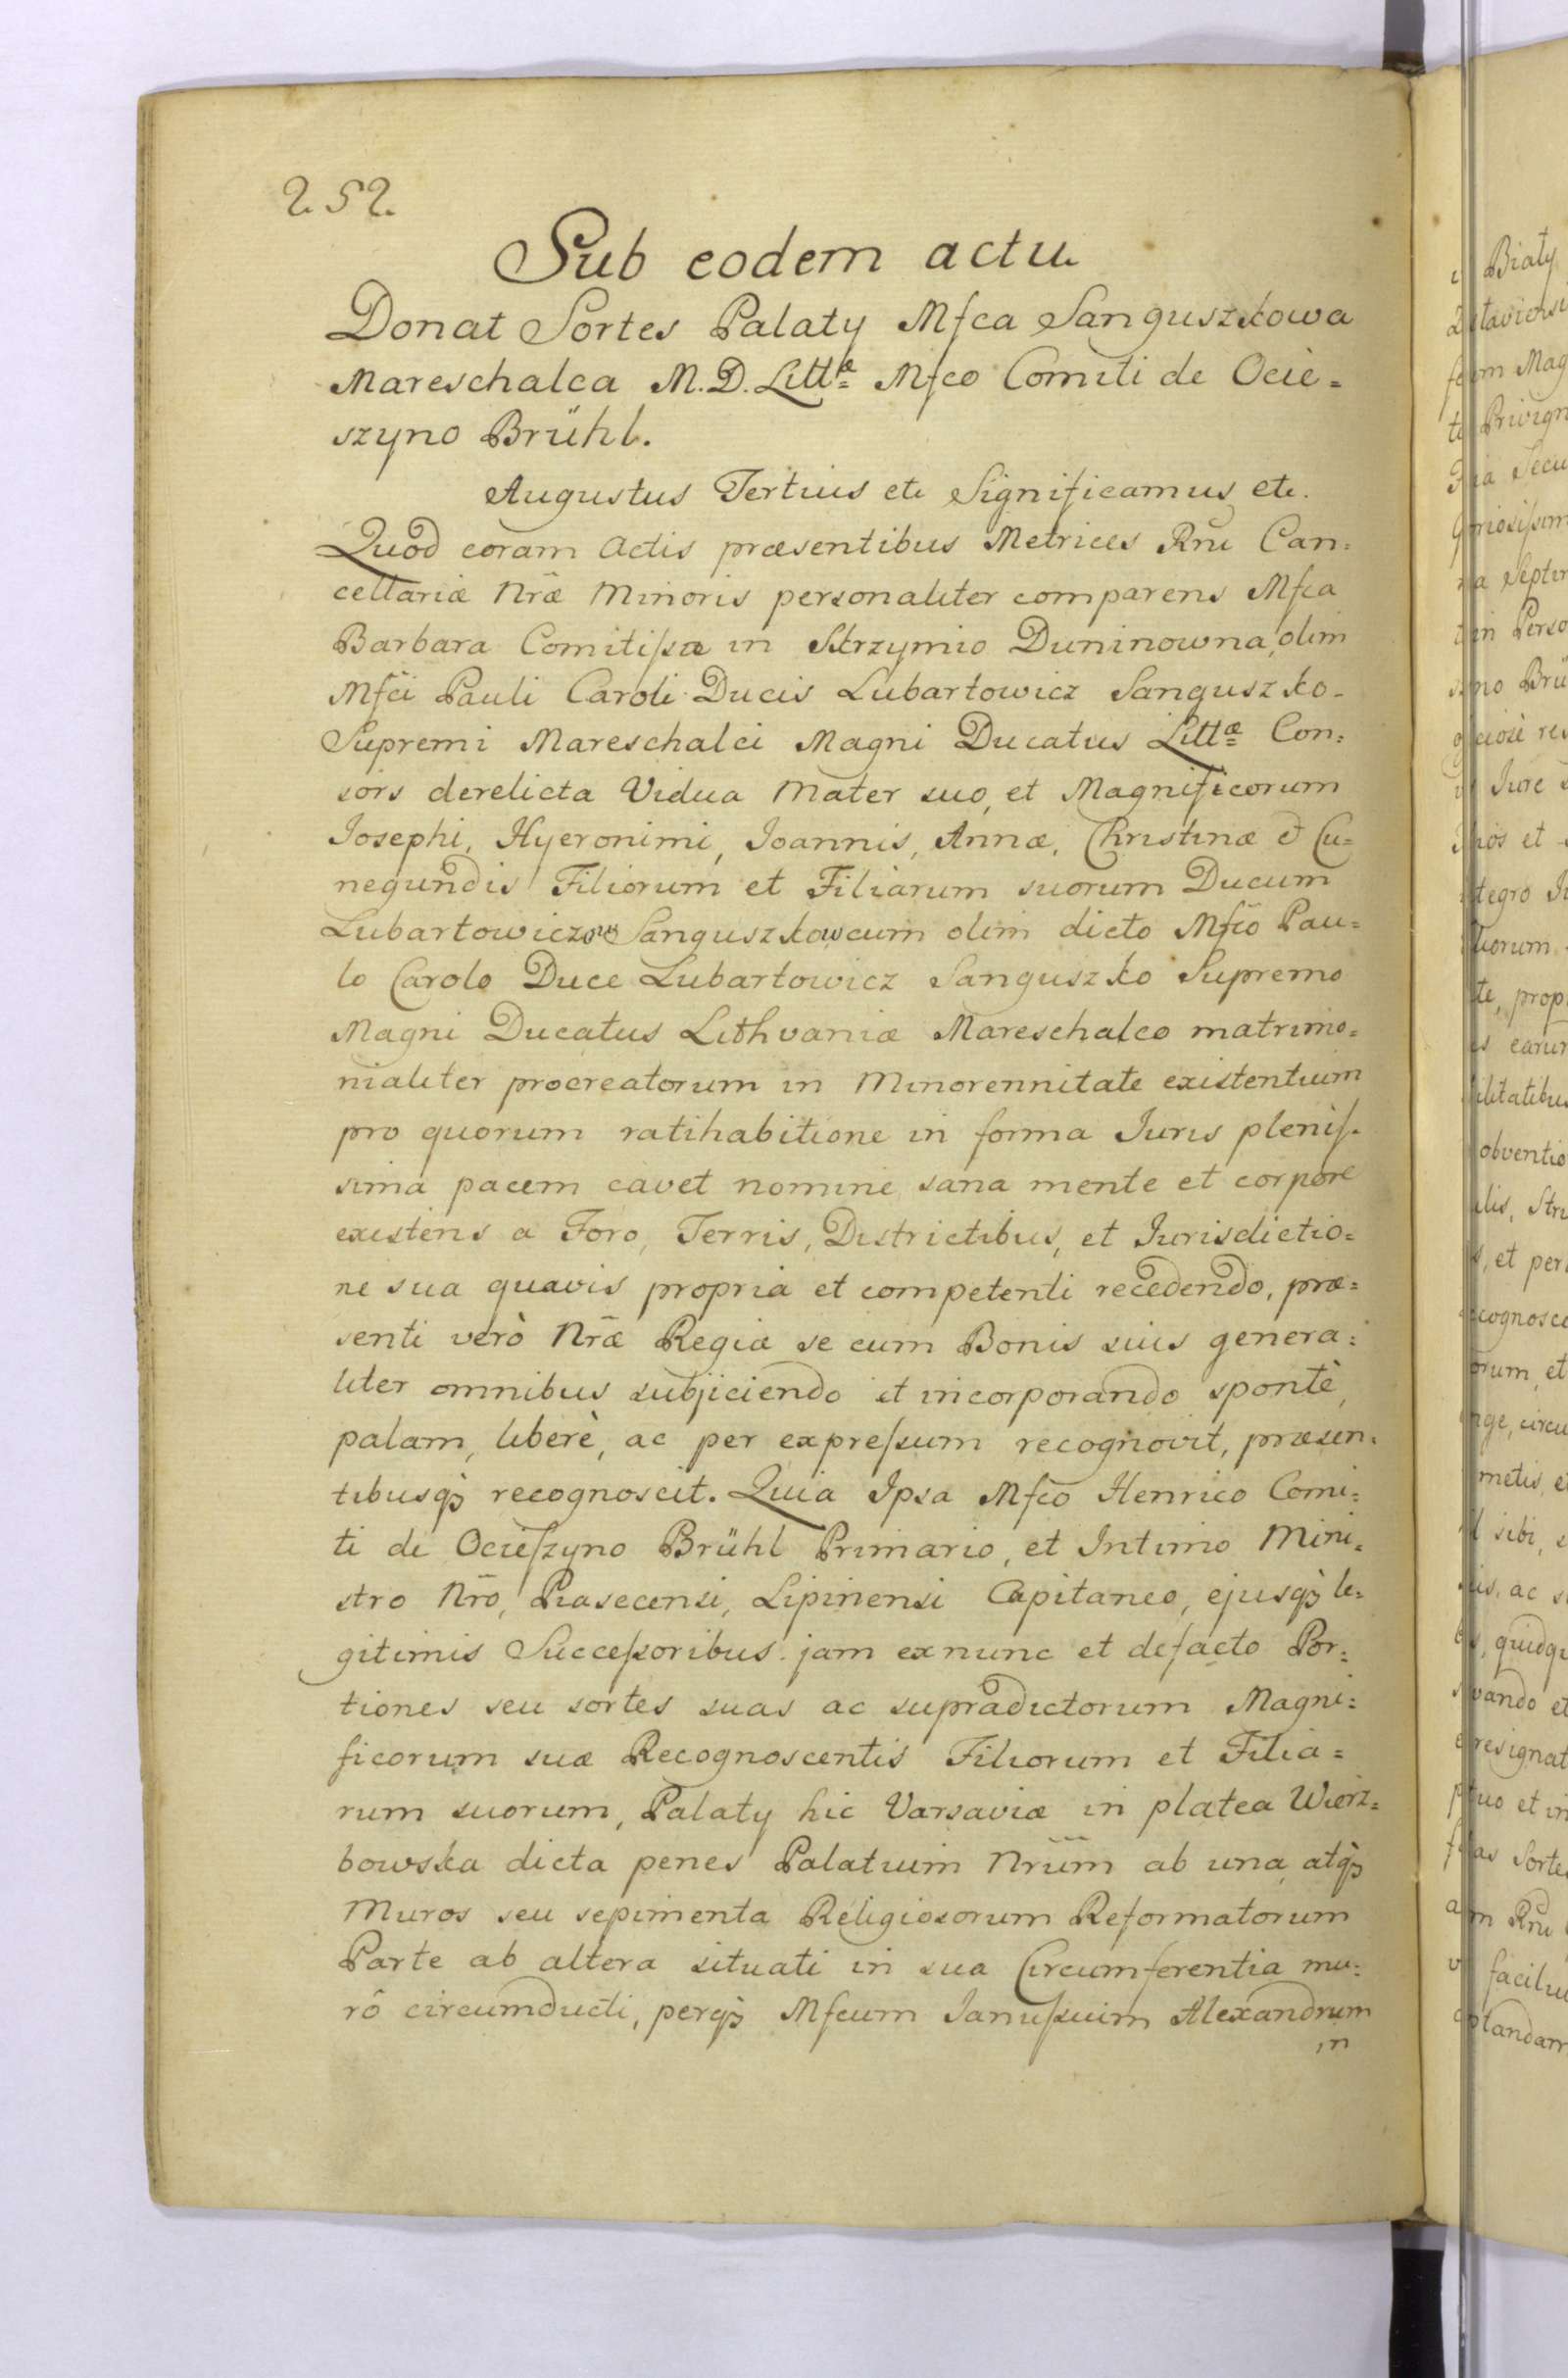 252.
Sub eodem actu
Donat Sortes Palaty Mfca Sanguszkowa
Mareschalca M. D. Littæ Mfco Comiti de Ocie=
szyno Brühl.
Augustus Tertius etc Significamus etc.
Quod coram Actis præsentibus Metrices Rni Can=
cellariæ Nræ Minoris personaliter comparens Mfca
Barbara Comitiſsa in Skrzymio Duninowna, olim
Mfci Pauli Caroli Ducis Lubartowicz Sanguszko
Supremi Mareschalci Magni Ducatus Littæ Con=
sors derelicta Vidua Mater suo, et Magnificorum
Josephi, Hyeronimi, Joannis, Annæ, Christinæ et Cu=
negundis Filiorum et Filiarum suorum Ducum
Lubartowiczow Sanguszkow cum olim dicto Mfco Pau=
lo Carolo Duce Lubartowicz Sanguszko Supremo
Magni Ducatus Lithvaniæ Mareschalco matrimo=
nialiter procreatorum in Minorennitate existentium
pro quorum ratihabitione in forma Juris pleniſ=
sima pacem cavet nomine, sana mente et corpore
existens a Foro, Terris, Districtibus, et Jurisdictio=
ne sua quavis propria et competenti recedendo, præ=
senti verò Nræ Regiæ se cum Bonis suis genera=
liter omnibus subjiciendo et incorporando spontè,
palam, liberè, ac per expreſsum recognovit, præsen=
tibusq3 recognoscit. Quia Ipsa Mfco Henrico Comi=
ti de Ocieſzyno Brühl Primario, et Intimo Mini=
stro Nro, Piasecensi, Lipinensi Capitaneo, ejusq3 le=
gitimis Succeſsoribus jam exnunc et defacto Por=
tiones seu sortes suas ac supradictorum Magni=
ficorum suæ Recognoscentis Filiorum et Filia=
rum suorum, Palaty hic Varsaviæ in platea Wierz=
bowska dicta penes Palatium Nrum ab una, atq3
Muros seu sepimenta Religiosorum Reformatorum
Parte ab altera situati in sua Circumferentia mu=
rô circumducti, perq3 Mfcum Januſsium Alexandrum
in